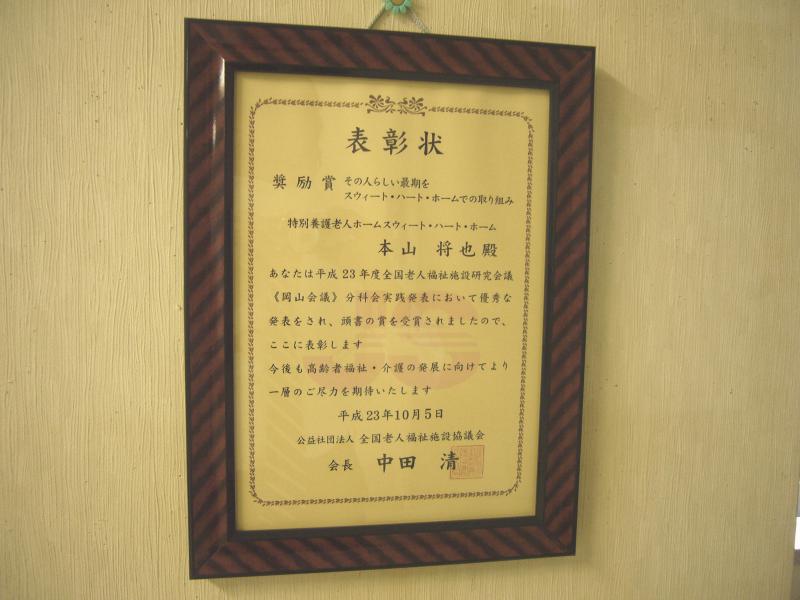 表彰状
奨励賞 その人らしい最期を
スウィート・ハート・ホームでの取り組み
特別養護老人ホームスウィート・ハート・ホーム
本山 将也殿
あなたは平成23年度全国老人福祉施設研究会議
《岡山会議》分科会実践発表において優秀な
発表をされ、頭書の賞を受賞されましたので、
ここに表彰します
今後も高齢者福祉・介護の発展に向けてより
一層のご尽力を期待いたします
平成23年10月5日
公益社団法人 全国老人福祉施設協議会
会長 中田 清